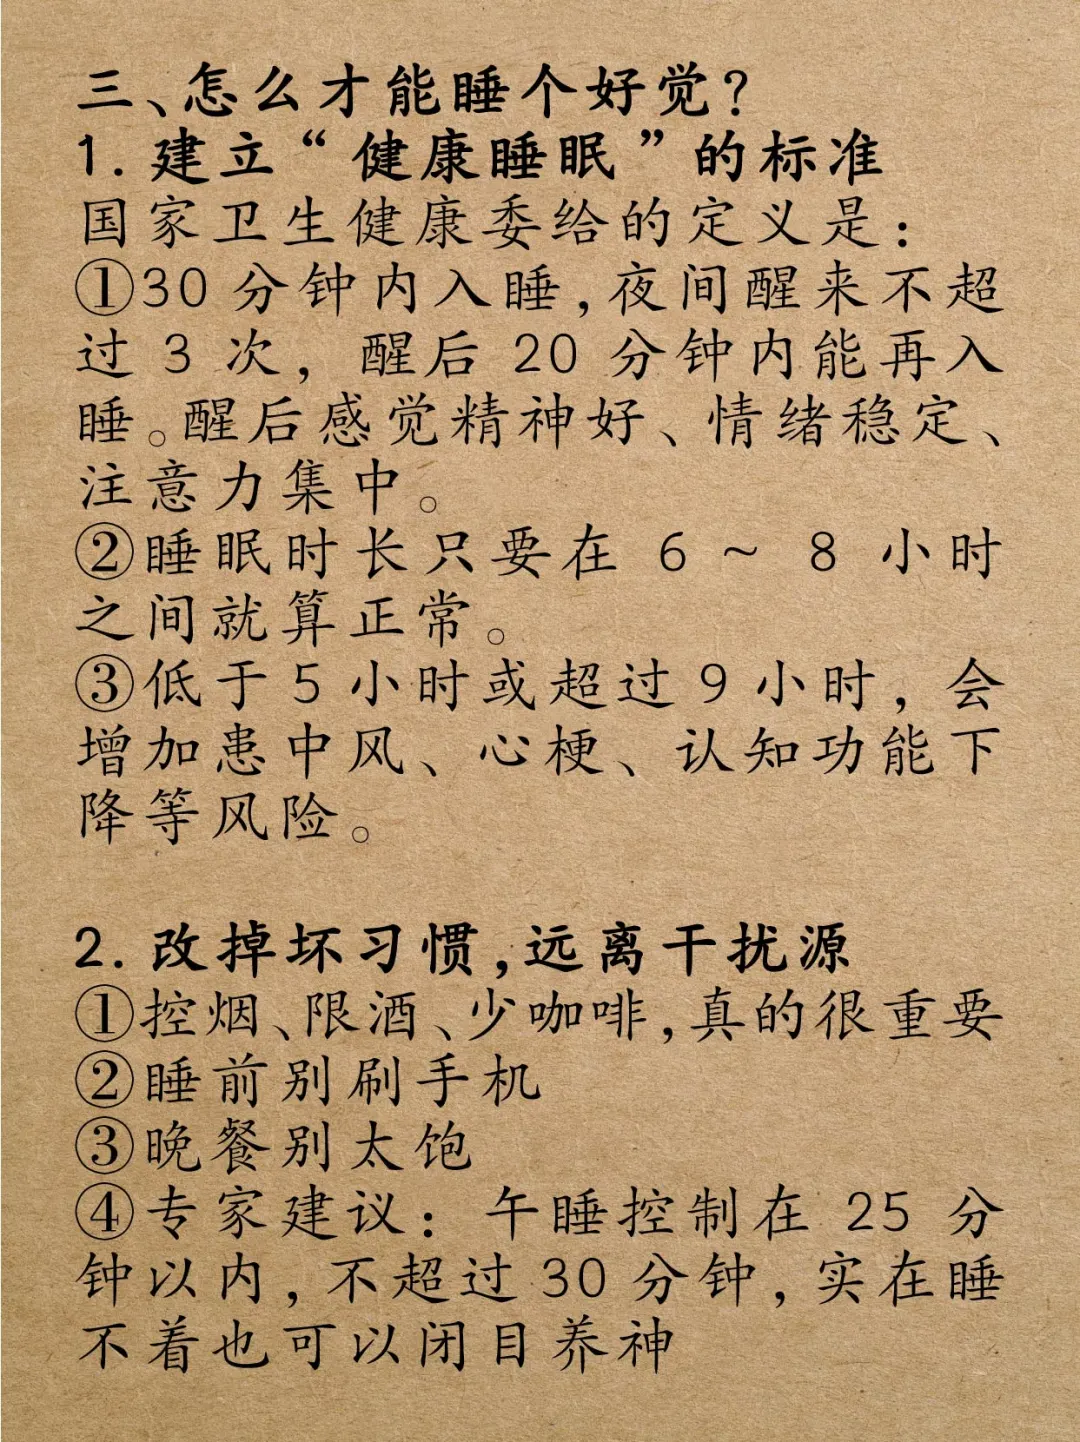 三、怎么才能睡个好觉？
1. 建立“健康睡眠”的标准
国家卫生健康委给的定义是：
①30 分钟内入睡，夜间醒来不超
过 3 次，醒后 20 分钟内能再入
睡。醒后感觉精神好、情绪稳定、
注意力集中。
②睡眠时长只要在 6 ~ 8 小时
之间就算正常。
③低于 5 小时或超过 9 小时，会
增加患中风、心梗、认知功能下
降等风险。
2. 改掉坏习惯，远离干扰源
①控烟、限酒、少咖啡，真的很重要
②睡前别刷手机
③晚餐别太饱
④专家建议：午睡控制在 25 分
钟以内，不超过 30 分钟，实在睡
不着也可以闭目养神